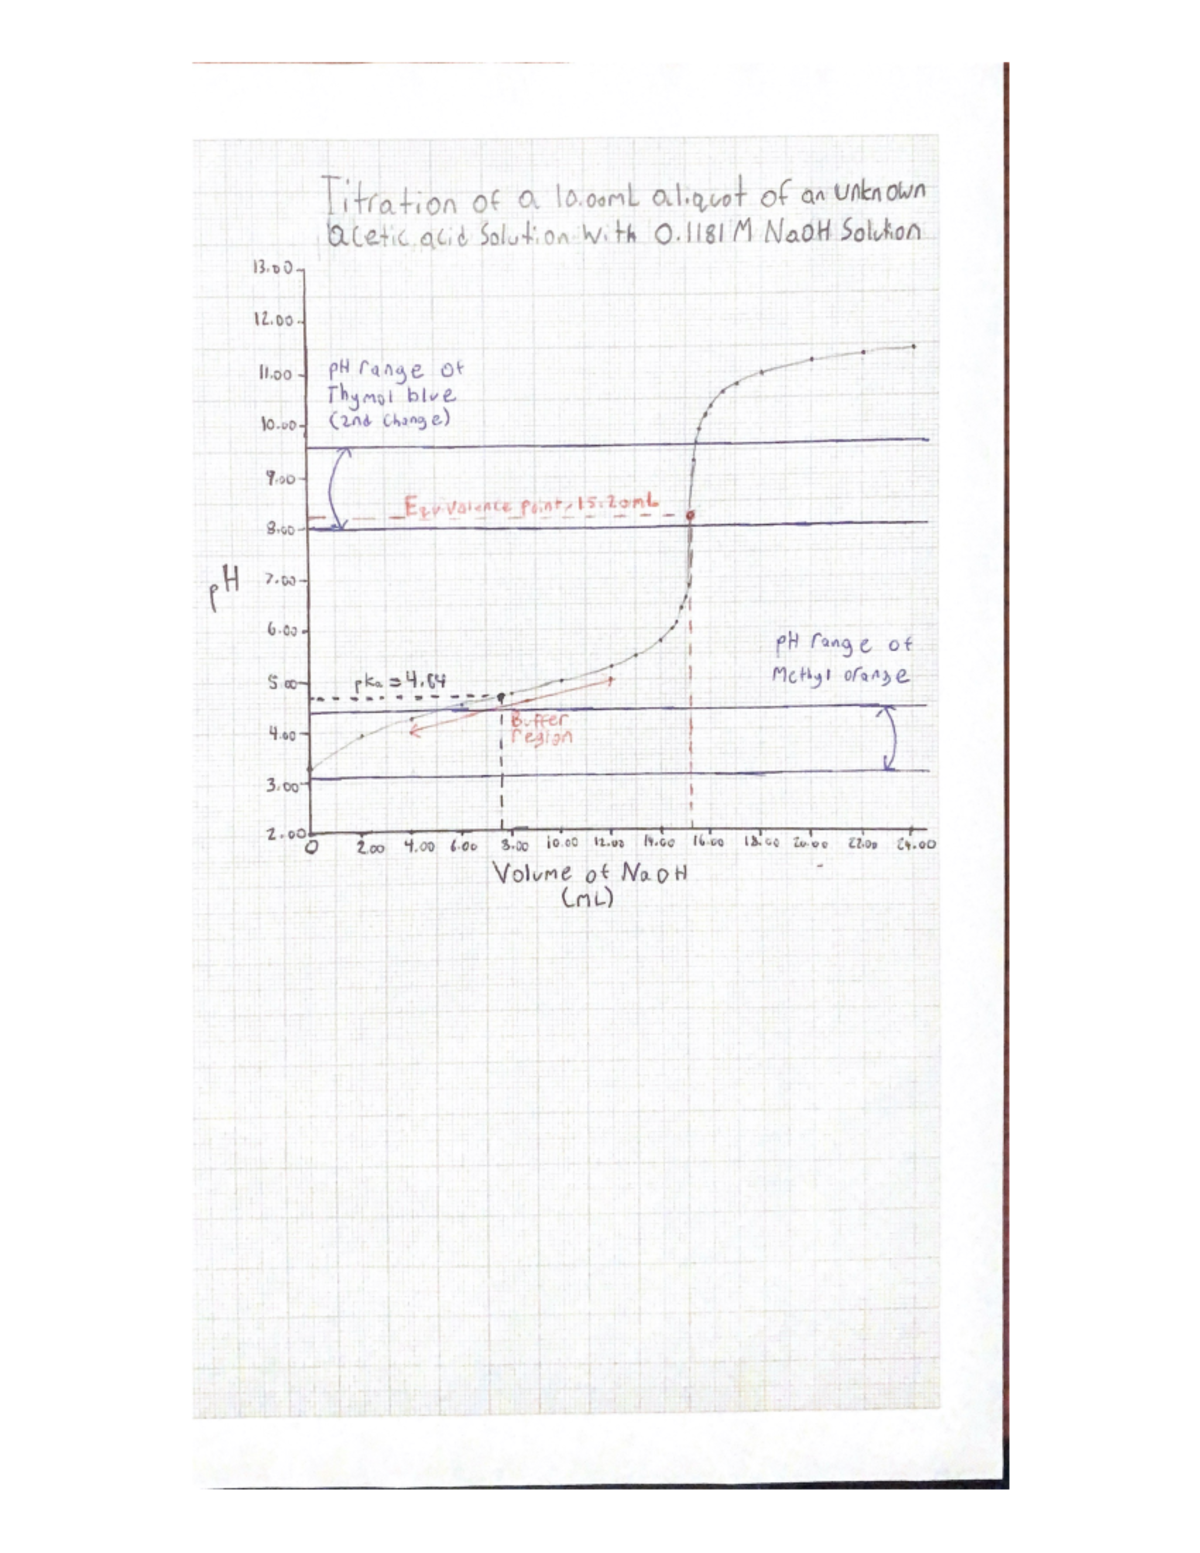 Titration of a 10.00mL aliquot of an unknown
acetic acid Solution With 0.1181 M NaOH Solution
13.00
12.00
11.00
pH range of
Thymol blue
(2nd Change)
10.00
9.00
Equivalence point, 15.20mL
8.00
pH
7.00
6.00
pH range of
Methyl orange
5.00
pka = 4.64
Buffer
region
4.00
3.00
2.00
0 2.00 4.00 6.00 8.00 10.00 12.00 14.00 16.00 18.00 20.00 22.00 24.00
Volume of NaOH
(mL)